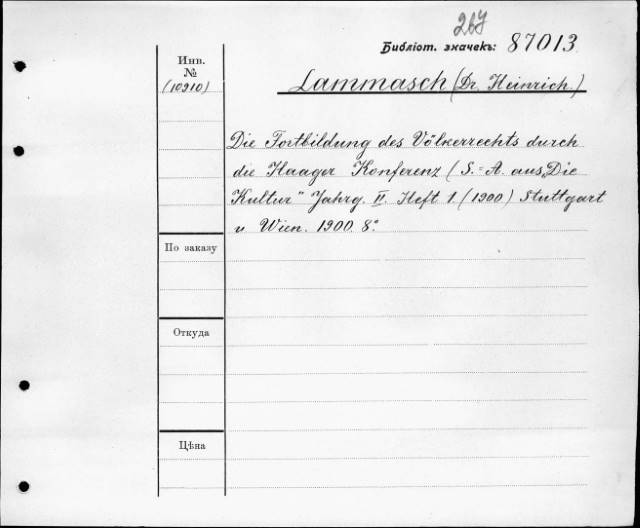 267
Библіот. значекъ: 87013
Инв.
№
(10910)
Lammasch (Dr. Heinrich)
Die Fortbildung des Völkerrechts durch
die Haager Konferenz (S.=A. aus „Die
Kultur" Jahrg. II. Heft 1. (1900) Stuttgart
u. Wien. 1900. 8°.
По заказу
Откуда
Цѣна